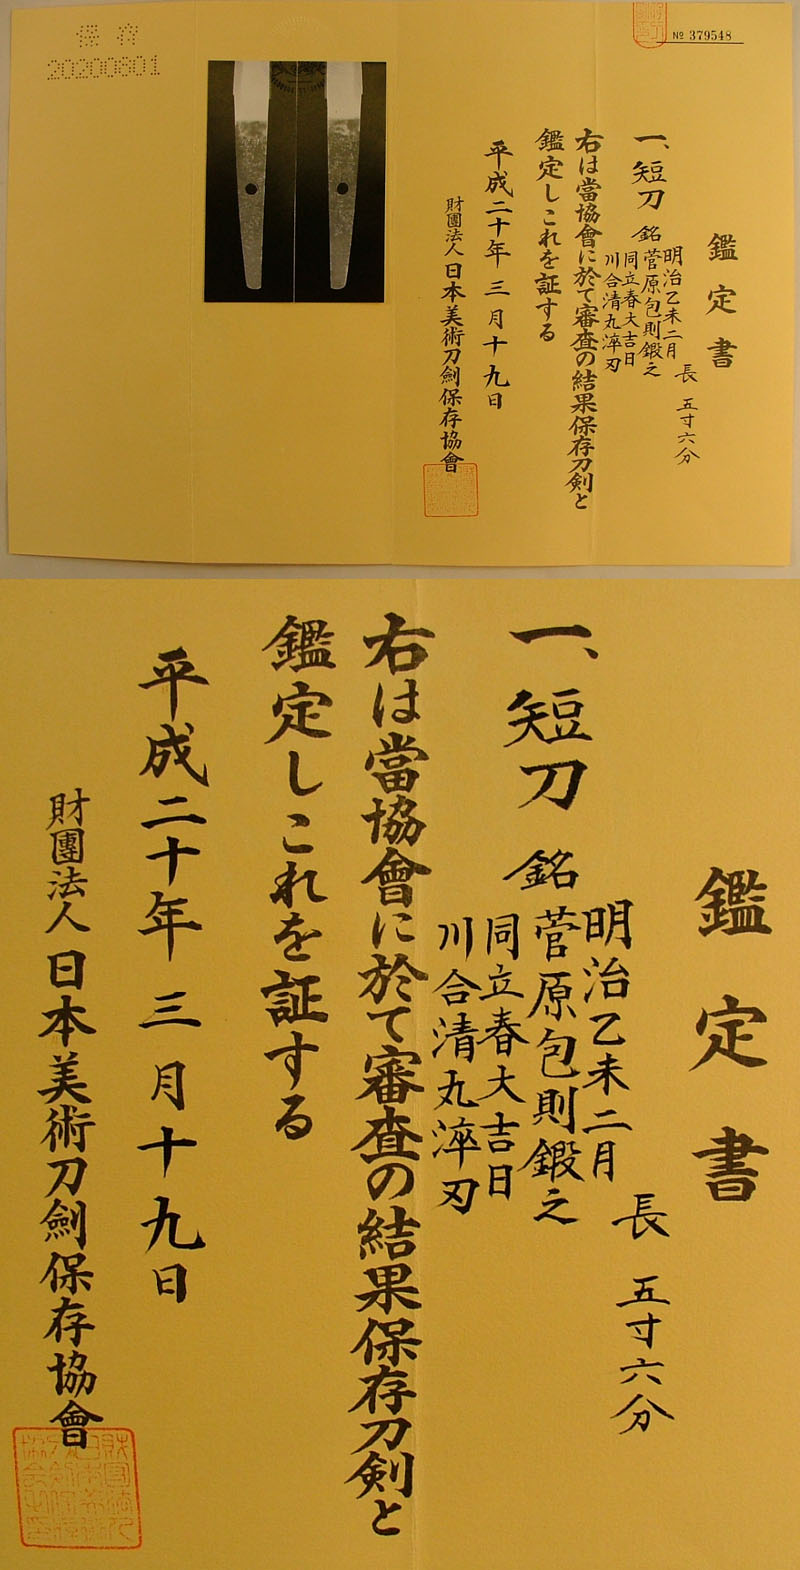 № 379548
鑑定書
長 五寸六分
一、短刀 銘
明治乙未二月
菅原包則鍛之
同立春大吉日
川合清丸淬刃
右は當協會に於て審査の結果保存刀剣と
鑑定しこれを証する
平成二十年三月十九日
財團法人日本美術刀劍保存協會
保存
20200801
鑑定書
長 五寸六分
一、短刀 銘
明治乙未二月
菅原包則鍛之
同立春大吉日
川合清丸淬刃
右は當協會に於て審査の結果保存刀剣と
鑑定しこれを証する
平成二十年三月十九日
財團法人日本美術刀劍保存協會